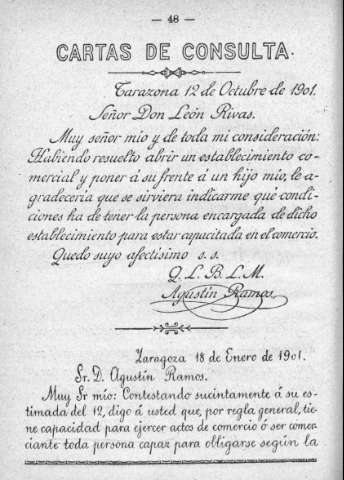 — 48 —
CARTAS DE CONSULTA.
Tarazona 12 de Octubre de 1901.
Señor Don León Rivas.
Muy señor mio y de toda mi consideración:
Habiendo resuelto abrir un establecimiento co-
mercial y poner á su frente á un hijo mio, le a-
gradeceria que se sirviera indicarme qué condi-
ciones ha de tener la persona encargada de dicho
establecimiento para estar capacitada en el comercio.
Quedo suyo afectísimo s. s.
Q. L. B. L. M.
Agustín Ramos.
Zaragoza 18 de Enero de 1901.
Sr. D. Agustín Ramos.
Muy Sr mío: Contestando sucintamente á su es-
timada del 12, digo á usted que, por regla general, tie
ne capacidad para ejercer actos de comercio ó ser comer
ciante toda persona capaz para obligarse según la